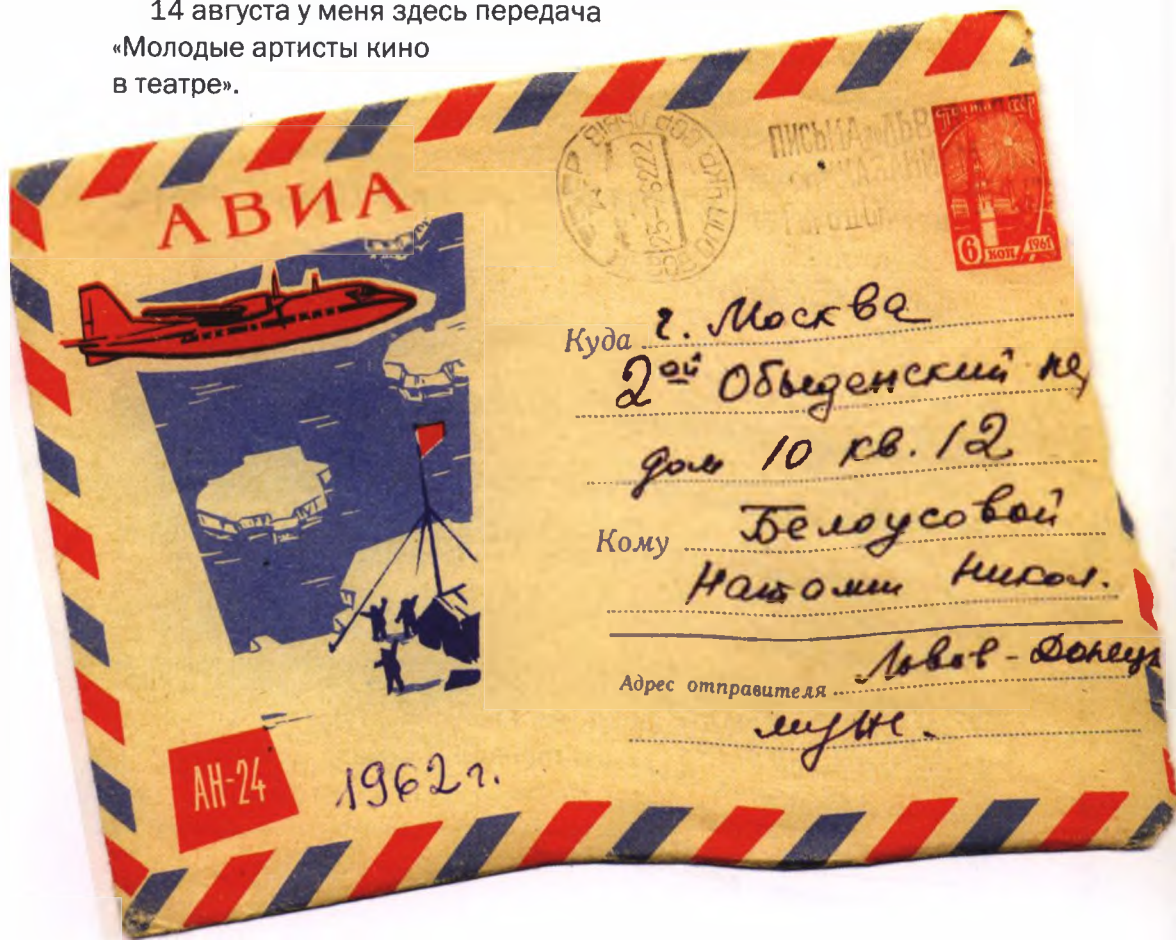 14 августа у меня здесь передача
«Молодые артисты кино
в театре».
АВИА
ПИСЬМА
6 коп 1961
Куда г. Москва
2ой Обыденский пе
дом 10 кв. 12
Кому Белоусовой
Наталии Никол.
Адрес отправителя Львов-Донецк
муж.
АН-24
1962 г.